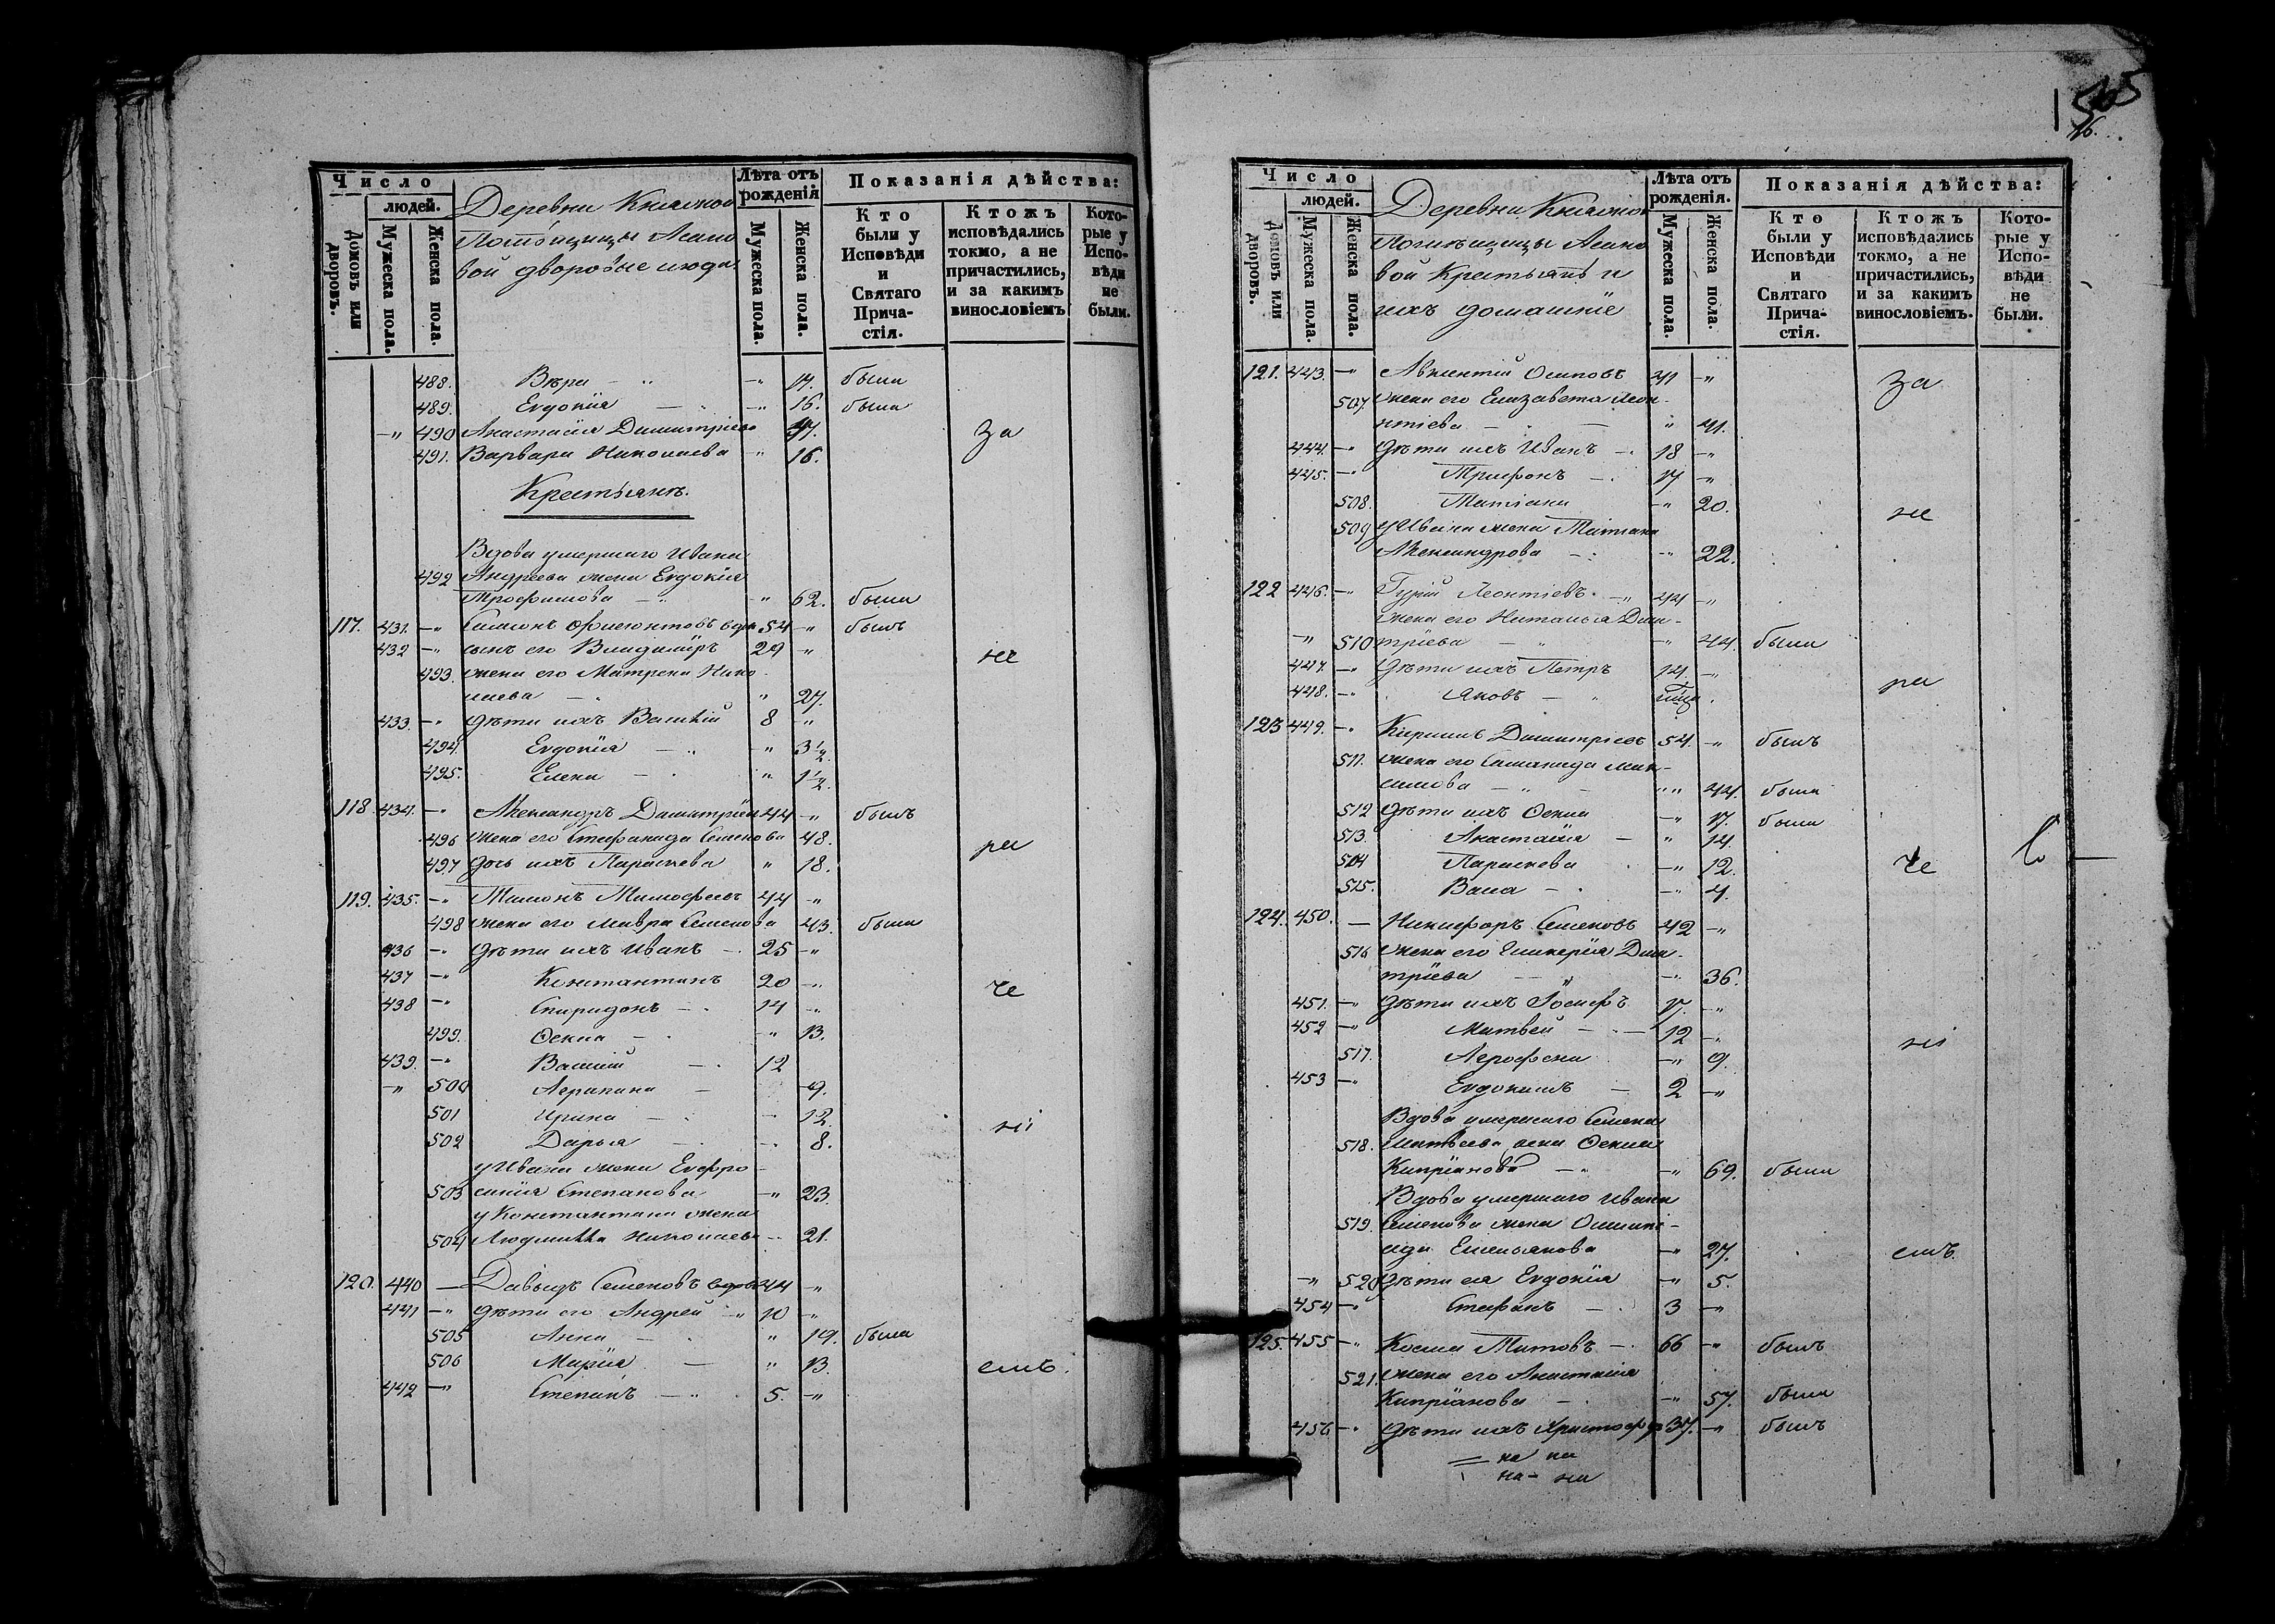 Число
людей.
Домовъ или дворовъ.
Мужеска пола.
Женска пола.
Деревни
Помѣщицы
вой дворовые люди
Лѣта отъ рожденія
Мужеска пола.
Женска пола.
Показанія дѣйства:
Кто были у Исповѣди и Святаго Прича-стія.
Ктожъ исповѣдались токмо, а не причастились, и за какимъ винословіемъ
Кото-рые у Испо-вѣди не были.
488. Вѣра - " -" 17. была
489. Евдокія - -" 16. была
-" 490 Анастасія Димитріева 37. за
491. Варвара Николаева " 16.
Крестьяне.
Вдова умершаго Ивана
492 Андреева жена Евдокія
Трофимова - " 62. была
117. 431. -" вдов 54 -" былъ
432 -" сынъ его Владиміръ 29 " не
493. жена его Матрена Нико-
лаева - " 27.
433 -" дѣти ихъ Василій 8 -"
494. Евдокія - " 3 1/2.
495. Елена - " 1 1/2.
118. 434. -" Александръ Димитріевъ 44 -" былъ
496 жена его Стефанида Семенова 48. ра
497 дочь ихъ Параскева " 18.
119. 435. -" Тимофеевъ 44 -"
498 жена его Мавра Семенова 43. была
436 -" дѣти ихъ Иванъ - 25 -"
437 -" Константинъ 20 -" че
438 -" Спиридонъ - 14 -"
499. - " 13.
439. -" Василій - 12
-" 500 Агрипина - 9.
501 Ирина - 12. ні
502 Дарья - 8.
у Ивана жена Евфро-
503 синія Степанова -" 23
у Константина жена
504 Людмила Николаева 21.
120. 440 - Давыдъ Семеновъ вдовъ 44 "
441 -" дѣти его Андрей " 10 -"
505 Анна - " 19. была
506 Марія - " 13. емъ.
442 -" Степанъ - 5. -"
Число
людей.
Домовъ или дворовъ.
Мужеска пола.
Женска пола.
Деревни
Помѣщицы
вой Крестьянъ и
ихъ домашніе
Лѣта отъ рожденія.
Мужеска пола.
Женска пола.
Показанія дѣйства:
Кто были у Исповѣди и Святаго Прича-стія.
Ктожъ исповѣдались токмо, а не причастились, и за какимъ винословіемъ.
Кото-рые у Испо-вѣди не были.
121. 443. -" Осиповъ 41 -" за
507. жена его Елизавета Леон-
тіева - " 41.
444. -" дѣти ихъ Иванъ - 18 -"
445. -" Трифонъ - 17 -"
508. Татіана -" 20. не
509 у Ивана жена Татіана
Александрова - -" 22.
122 446. -" Гурій Леонтіевъ - 44 -"
жена его Наталья Дми-
-" 510 тріева - -" 44. была
447. -" дѣти ихъ Петръ 14. -" ра
448. -" Яковъ -
123 449. -" Кириллъ Димитріевъ 54. -" былъ
511. жена его Мак-
симова - " 44. была
512 дѣти ихъ -" 17. была
513. Анастасія - " 14.
514 Параскева -" 12. че
515. Васса - -" 7.
124. 450. - Никифоръ Семеновъ 42 -"
516 жена его Гликерія Дми-
тріева - -" 36.
451. -" дѣти ихъ Іосифъ 17. -"
452 -" Матвей - 12 -" ні
517. Агрофена -" 9.
453 -" Евдокимъ - 2 -"
Вдова умершаго Семена
518. Матвеева жена
Кипріанова - -" 69. была
Вдова умершаго Ивана
519. Семенова жена Олимпі-
ада Емельянова -" 27. емъ.
-" 520 дѣти ея Евдокія -" 5.
454 -" Стефанъ - 3 -"
125. 455 -" Косма Титовъ - 66 -" былъ
521. жена его Анастасія
Кипріанова - -" 57. была
456 -" дѣти ихъ Христофоръ 37. -" былъ